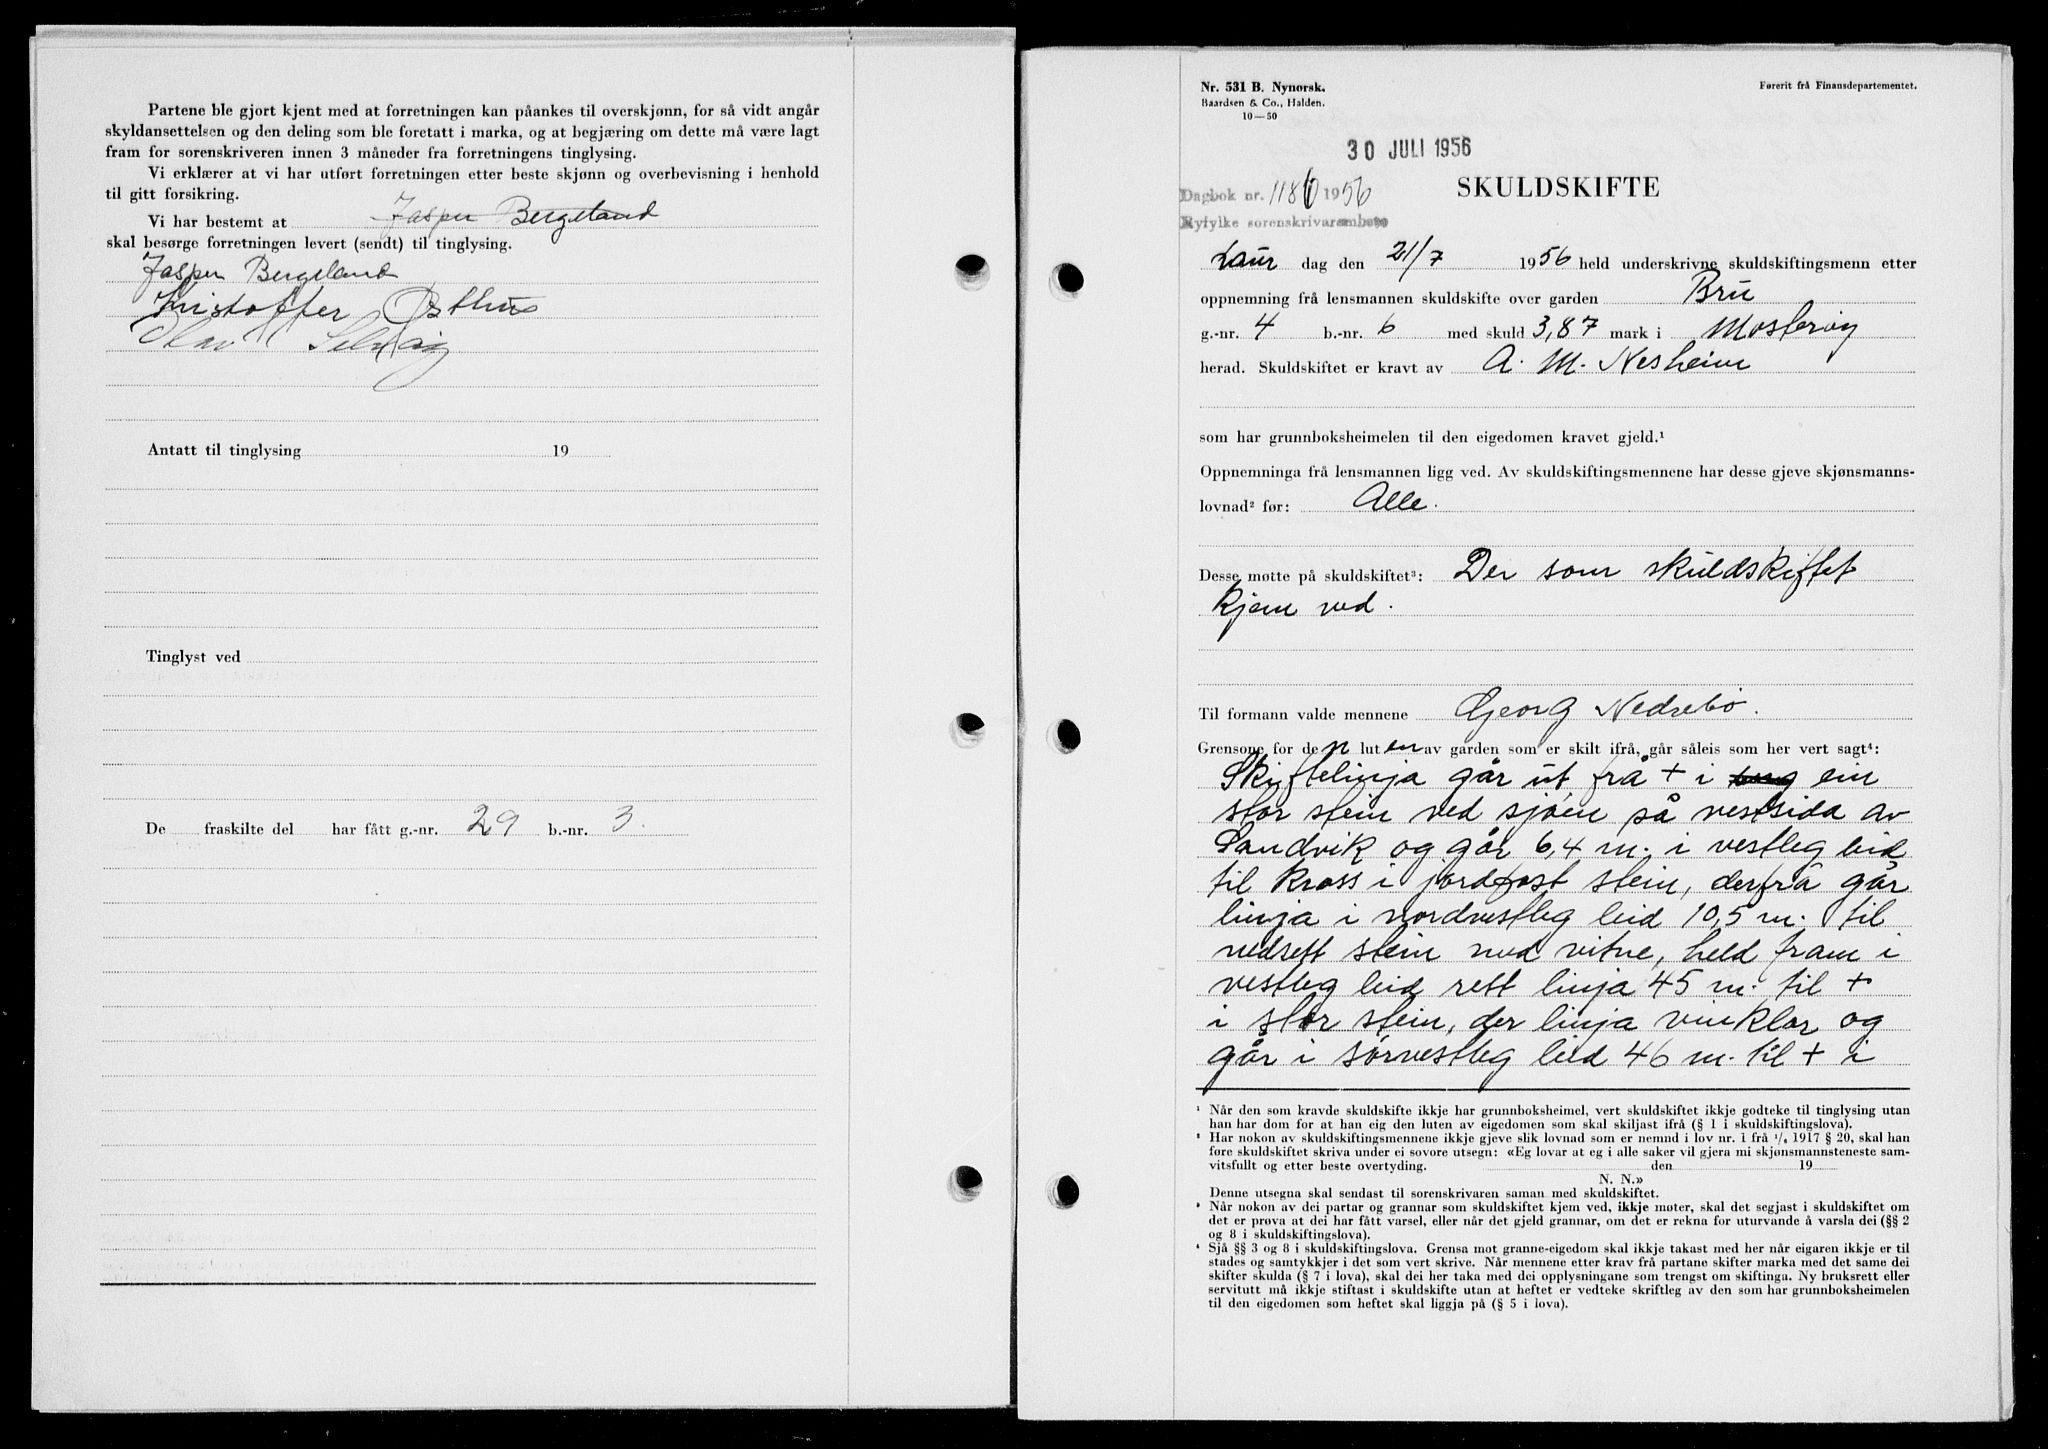 Partene ble gjort kjent med at forretningen kan påankes til overskjønn, for så vidt angår
skyldansettelsen og den deling som ble foretatt i marka, og at begjæring om dette må være lagt
fram for sorenskriveren innen 3 måneder fra forretningens tinglysing.
Vi erklærer at vi har utført forretningen etter beste skjønn og overbevisning i henhold
til gitt forsikring.
Vi har bestemt at Jasper Bergeland
skal besørge forretningen levert (sendt) til tinglysing.
Jasper Bergeland
Kristoffer Østhus
Olav Selvåg
Antatt til tinglysing 19
Tinglyst ved
De fraskilte del har fått g.-nr. 29 b.-nr. 3.
Nr. 531 B. Nynorsk.
Baardsen & Co., Halden.
10—50
Førerit frå Finansdepartementet.
30 JULI 1956
SKULDSKIFTE
Dagbok nr. 1186 1956
Ryfylke sorenskrivarembete
Laur dag den 21/7 1956 held underskrivne skuldskiftingsmenn etter
oppnemning frå lensmannen skuldskifte over garden Bru
g.-nr. 4 b.-nr. 6 med skuld 3,87 mark i Mosterøy
herad. Skuldskiftet er kravt av A. M. Nesheim
som har grunnboksheimelen til den eigedomen kravet gjeld.¹
Oppnemninga frå lensmannen ligg ved. Av skuldskiftingsmennene har desse gjeve skjønsmanns-
lovnad² før: Alle.
Desse møtte på skuldskiftet³: Dei som skuldskiftet
kjem ved.
Til formann valde mennene Georg Nedrebø.
Grensone for den luten av garden som er skilt ifrå, går såleis som her vert sagt⁴:
Skiftelinja går ut frå + i ein
stor stein ved sjøen på vestsida av
Sandvik og går 6,4 m. i vestleg leid
til kross i jordfast stein, derfrå går
linja i nordvestleg leid 10,5 m. til
nedsett stein med vitne, held fram i
vestleg leid rett linja 45 m. til +
i stor stein, der linja vinklar og
går i sørvestleg leid 46 m. til + i
¹ Når den som kravde skuldskifte ikkje har grunnboksheimel, vert skuldskiftet ikkje godteke til tinglysing utan
han har dom for at han eig den luten av eigedomen som skal skiljast ifrå (§ 1 i skuldskiftingslova).
² Har nokon av skuldskiftingsmennene ikkje gjeve slik lovnad som er nemnd i lov nr. 1 frå ¹/₆ 1917 § 20, skal han
føre skuldskiftet skriva under ei sovore utsegn: «Eg lovar at eg i alle saker vil gjera mi skjønsmannsteneste sam-
vitsfullt og etter beste overtyding. den 19
N. N.»
Denne utsegna skal sendast til sorenskrivaren saman med skuldskiftet.
³ Når nokon av dei partar og grannar som skuldskiftet kjem ved, ikkje møter, skal det segjast i skuldskiftet om
det er prova at dei har fått varsel, eller når det gjeld grannar, om det er rekna for uturvande å varsla dei (§§ 2
og 8 i skuldskiftingslova).
⁴ Sjå §§ 3 og 8 i skuldskiftingslova. Grensa mot granne-eigedom skal ikkje takast med her når eigaren ikkje er til
stades og samtykkjer i det som vert skrive. Når mennene etter krav frå partane skifter marka med det same dei
skifter skulda (§ 7 i lova), skal dei her taka med dei opplysningane som trengst om skiftinga. Ny bruksrett eller
servitutt må ikkje stiftast i skuldskifte utan at heftet er vedteke skriftleg av den som har grunnboksheimelen
til den eigedomen som heftet skal liggja på (§ 5 i lova).